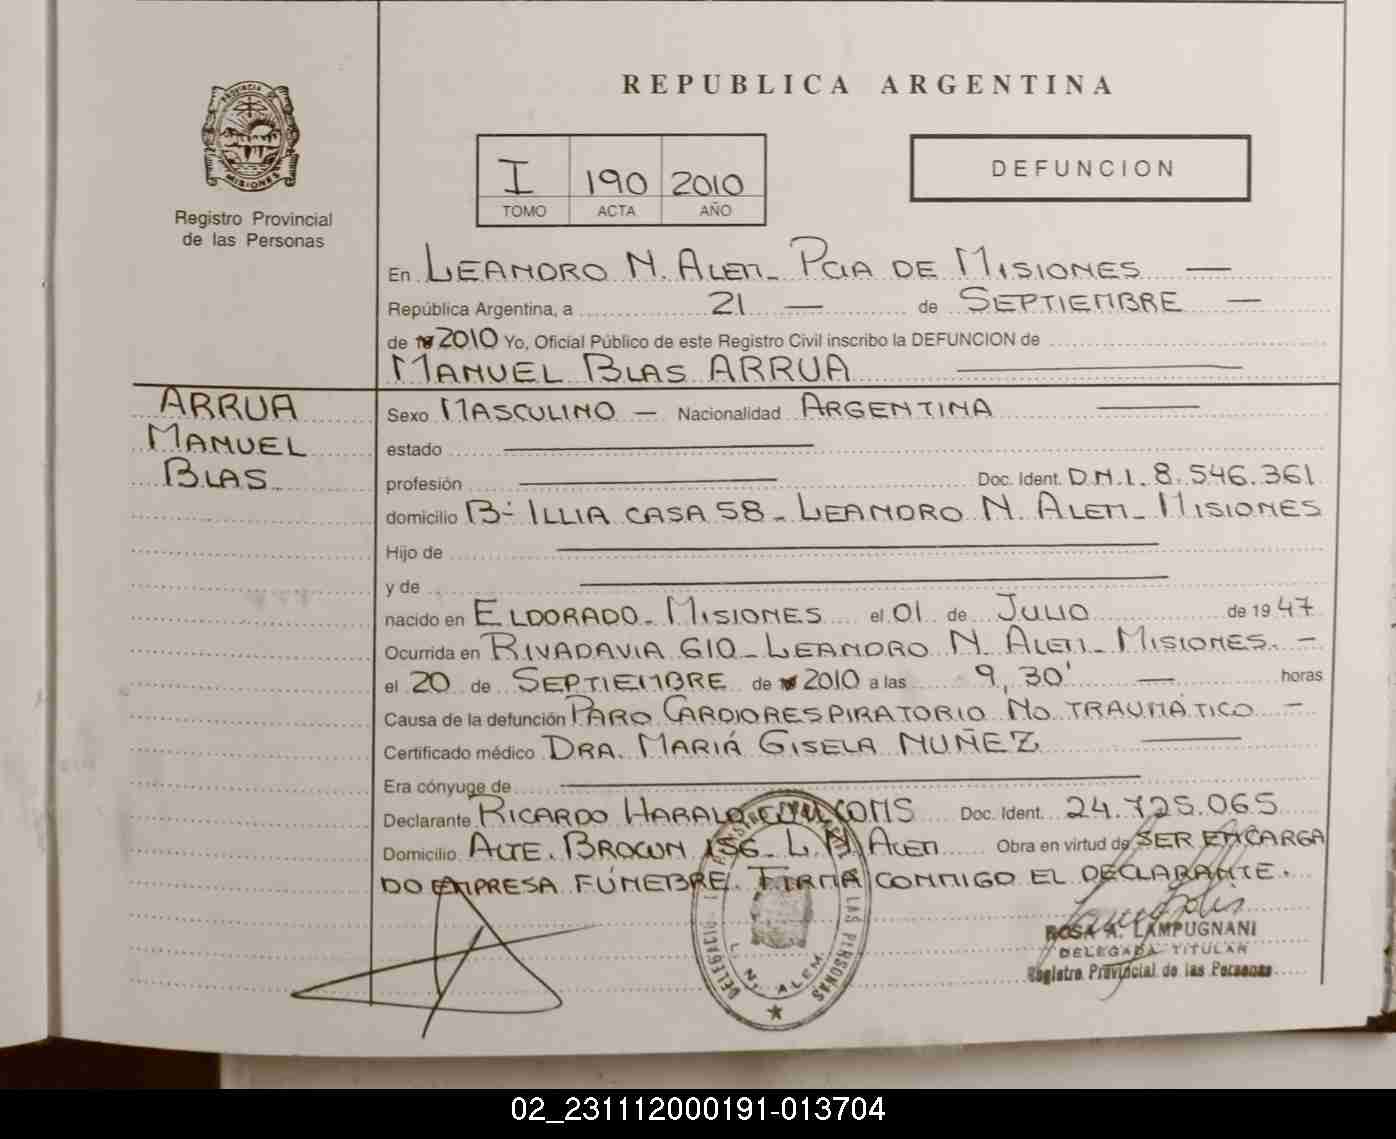 REPUBLICA ARGENTINA
PROVINCIA DE
MISIONES
Registro Provincial
de las Personas
I 190 2010
TOMO ACTA AÑO
DEFUNCION
En LEANDRO N. ALEM_ PCIA DE MISIONES —
República Argentina, a 21 — de SEPTIEMBRE —
de 2010 Yo, Oficial Público de este Registro Civil inscribo la DEFUNCION de
MANUEL BLAS ARRUA
ARRUA
MANUEL
BLAS
Sexo MASCULINO — Nacionalidad ARGENTINA
estado
profesión Doc. Ident. D.N.I. 8.546.361
domicilio Bº ILLIA CASA 58_ LEANDRO N. ALEM_ MISIONES
Hijo de
y de
nacido en ELDORADO_ MISIONES el 01 de JULIO de 1947
Ocurrida en RIVADAVIA 610_ LEANDRO N. ALEM_ MISIONES. —
el 20 de SEPTIEMBRE de 2010 a las 9,30' — horas
Causa de la defunción PARO CARDIORESPIRATORIO NO TRAUMÁTICO —
Certificado médico DRA. MARIÁ GISELA NUÑEZ
Era cónyuge de
Declarante RICARDO HARALD Doc. Ident. 24.725.065
Domicilio ALTE. BROWN 156_ L. N. ALEM Obra en virtud de SER ENCARGA
DO EMPRESA FÚNEBRE. FIRMA CONMIGO EL DECLARANTE.
DELEGACIO LAS PERSONAS
L. N. ALEM
ROSA A. LAMPUGNANI
DELEGADA TITULAR
Registro Provincial de las Personas
02_231112000191-013704